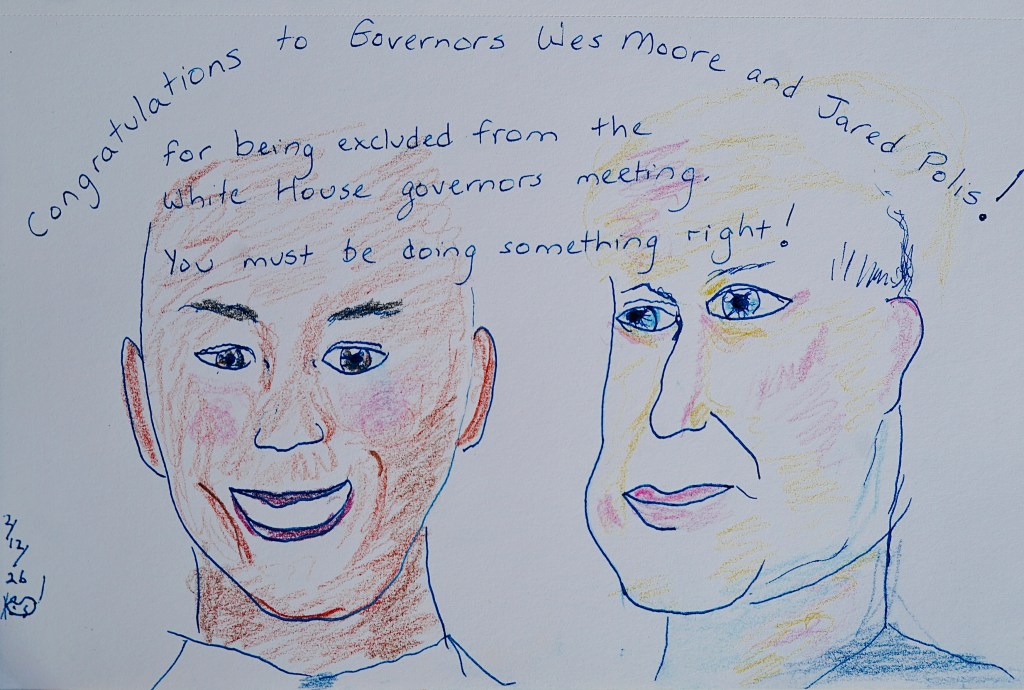 Congratulations to Governors Wes Moore and Jared Polis!
for being excluded from the
White House governors meeting.
You must be doing something right!
2/
12/
26